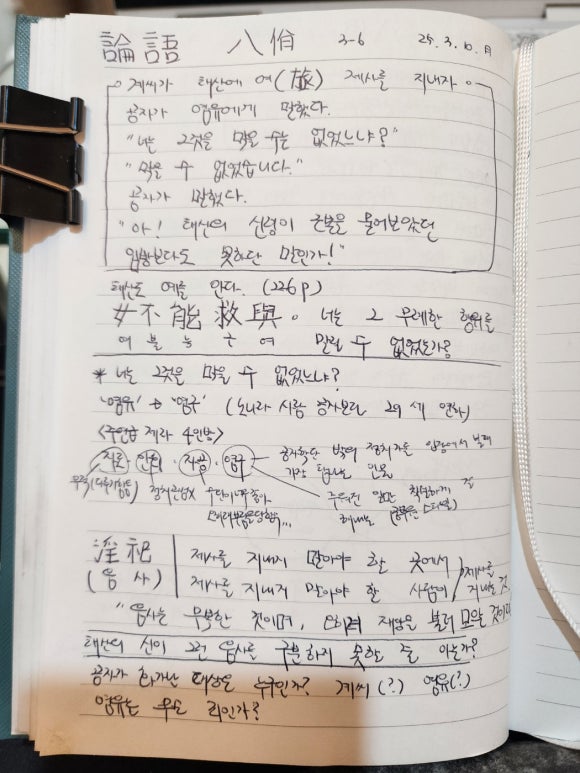 論語 八佾 3-6 25. 3. 10. 月
계씨가 태산에 여(旅) 제사를 지내자
공자가 염유에게 말했다.
"너는 그것을 막을 수는 없었느냐?"
"막을 수 없었습니다."
공자가 말했다.
"아! 태산의 신령이 근본을 물어보았던
임방보다도 못하단 말인가!"
태산도 예를 안다. (226p)
女不能救與。 너는 그 무례한 행위를
여 불 능 구 여 말릴 수 없었는가?
* 너는 그것을 막을 수 없었느냐?
'염유' → '염구' (노나라 사람 공자보다 29세 연하)
<주연급 제자 4인방>
자로 · 안회 · 자공 · 염구
공자학단 밖의 정치가들 입장에서 볼때
가장 탐나는 인물
정치관심X 수단이 좋아
주어진 일만 착실하게 잘
해내는 (공무원 스타일)
淫祀 제사를 지내지 말아야 할 곳에서
(음사) 제사를 지내지 말아야 할 사람이 제사를 지내는 것.
"음사는 무복한 것이며, 오히려 재앙을 불러 모으는 것이다
태산의 신이 그런 음사를 구분하지 못할 줄 아는가?
공자가 화가난 대상은 누구인가? 계씨(?) 염유(?)
염유는 무슨 죄인가?